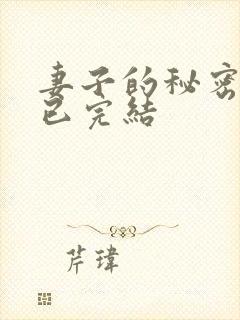 妻子的秘密
已完結
芹瑋